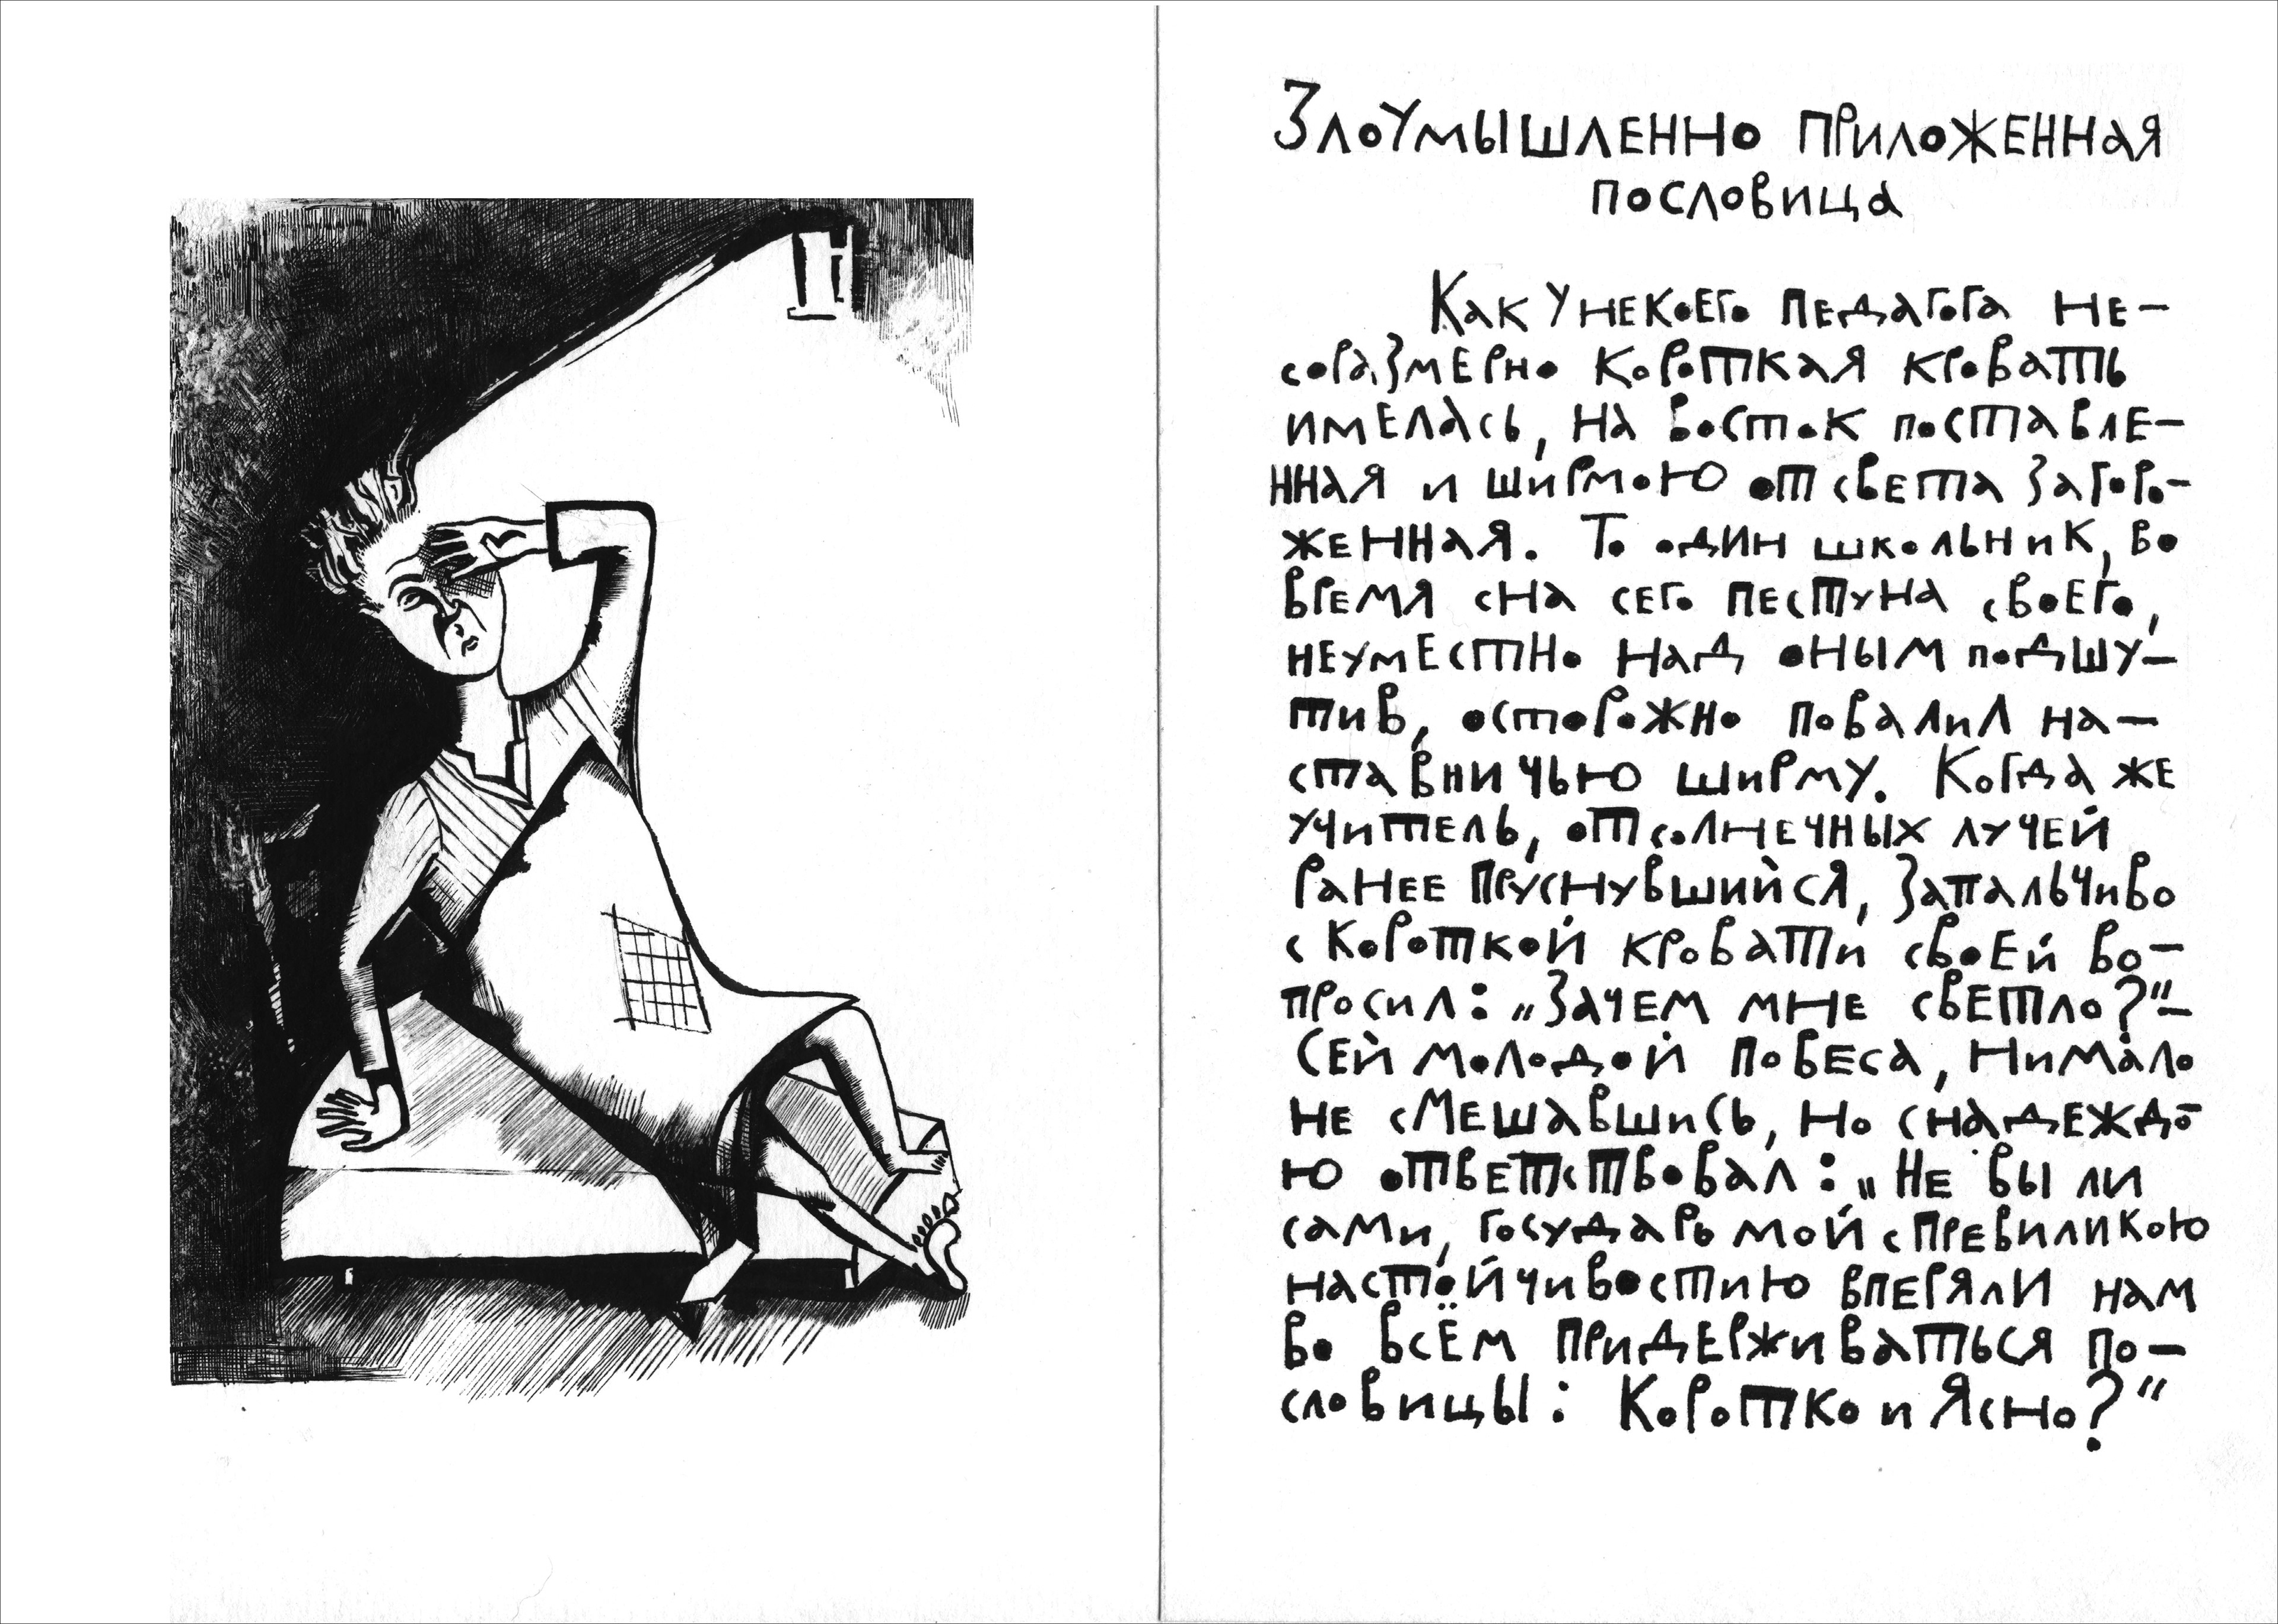 Злоумышленно приложенная
пословица
Как у некоего педагога не-
соразмерно короткая кровать
имелась, на восток поставле-
нная и ширмою от света загоро-
женная. То один школьник, во
время сна сего пестуна своего,
неуместно над оным подшу-
тив, осторожно повалил на-
ставничью ширму. Когда же
учитель, от солнечных лучей
ранее пруснувшийся, запальчиво
с короткой кровати своей во-
просил: „Зачем мне светло?“-
Сей молодой повеса, нимало
не смешавшись, но снадеждо
ю ответствовал: „Не вы ли
сами, государь мой с превиликою
настойчивостию вперяли нам
во всём придерживаться по-
словицы: Коротко и Ясно?“